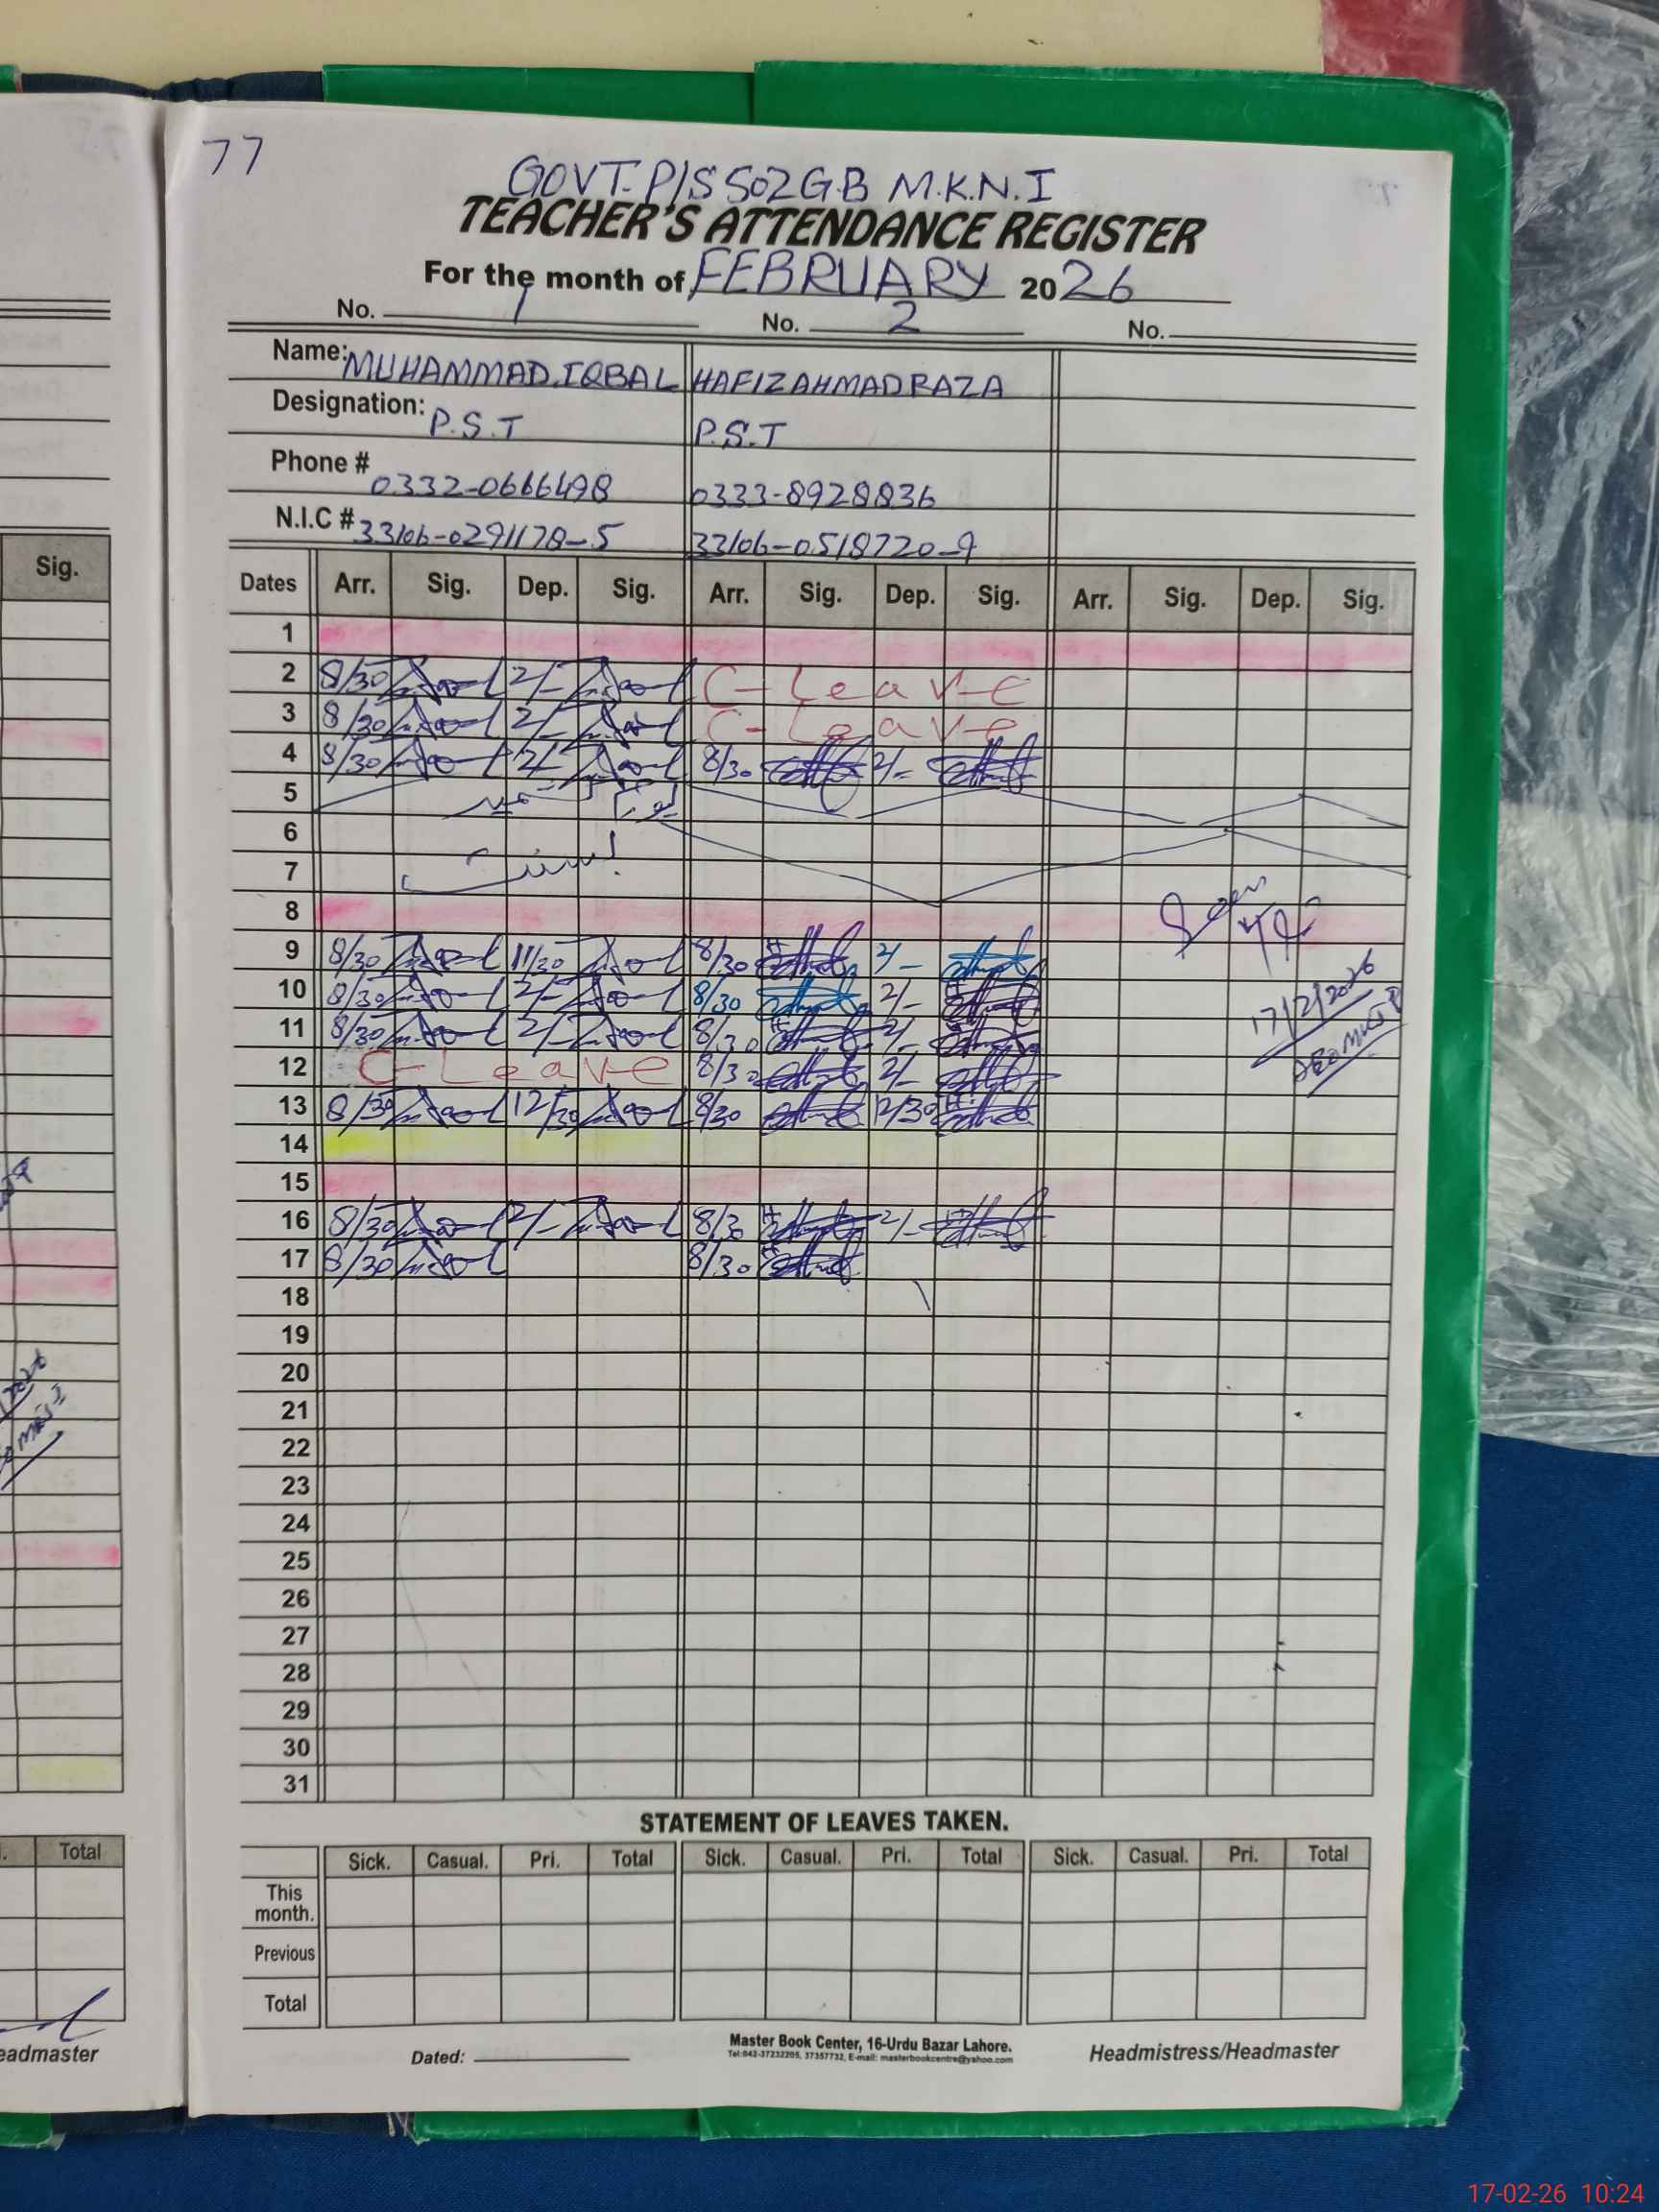 77
GOVT. P/S 502 G.B M.K.N.I
TEACHER'S ATTENDANCE REGISTER
For the month of FEBRUARY 2026
No. 1 No. 2 No.
Name: MUHAMMAD IQBAL HAFIZ AHMAD RAZA
Designation: P.S.T P.S.T
Phone # 0332-0666498 0333-8928836
N.I.C # 33106-0291178-5 33106-0518720-9
Sig.
Dates Arr. Sig. Dep. Sig. Arr. Sig. Dep. Sig. Arr. Sig. Dep. Sig.
1
2 8/30 2/- C-Leave
3 8/30 2/- C-Leave
4 8/30 2/- 8/30 2/-
5
6
7
8
Seen
9 8/30 11/30 8/30 2/-
10 8/30 2/- 8/30 2/-
17/2/2026
11 8/30 2/- 8/30 2/-
12 C-Leave 8/30 2/-
13 8/30 12/30 8/30 12/30
14
15
16 8/30 2/- 8/30 2/-
17 8/30 8/30
18
19
20
21
22
23
24
25
26
27
28
29
30
31
STATEMENT OF LEAVES TAKEN.
Total
Sick. Casual. Pri. Total Sick. Casual. Pri. Total Sick. Casual. Pri. Total
This month.
Previous
Total
eadmaster
Dated:
Master Book Center, 16-Urdu Bazar Lahore.
Tel:042-37232205, 37357732, E-mail: masterbookcentre@yahoo.com
Headmistress/Headmaster
17-02-26 10:24